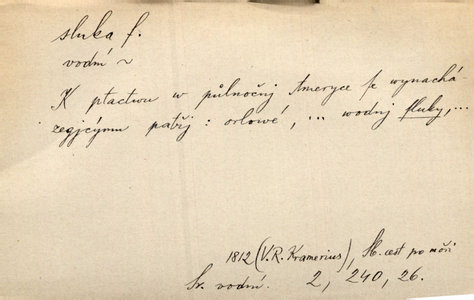 sluka f.
vodní ~
K ptactwu w půlnočnj Ameryce se wynachá
zegjcýmu patřj : orlowé, ... wodnj sluky, ...
1812 (V. R. Kramerius), Sb. cest po moři
Sr. vodní. 2, 240, 26.